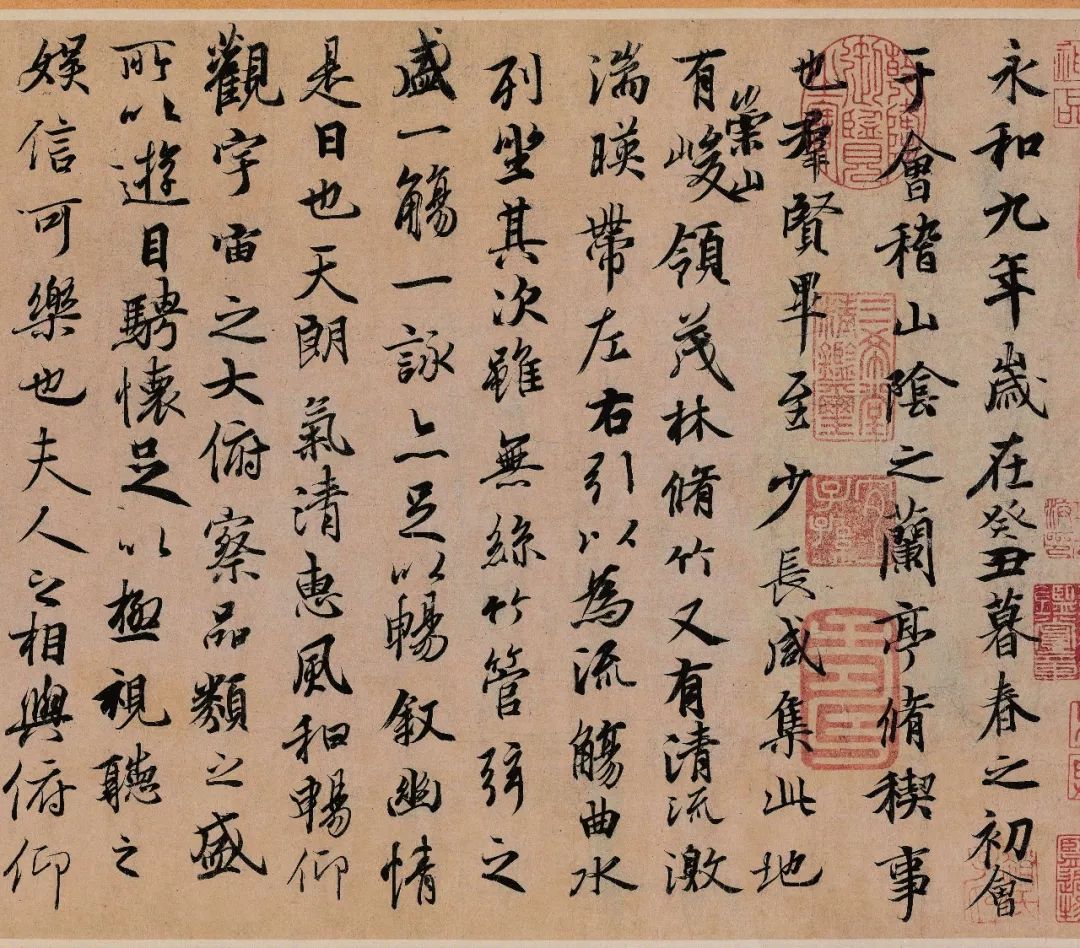 永和九年歲在癸丑暮春之初會
于會稽山陰之蘭亭脩稧事
也羣賢畢至少長咸集此地
有崇山峻領茂林脩竹又有清流激
湍暎帶左右引以為流觴曲水
列坐其次雖無絲竹管弦之
盛一觴一詠亦足以暢敘幽情
是日也天朗氣清惠風和暢仰
觀宇宙之大俯察品類之盛
所以遊目騁懷足以極視聽之
娛信可樂也夫人之相與俯仰
神品
三希堂精鑑璽
宜子孫